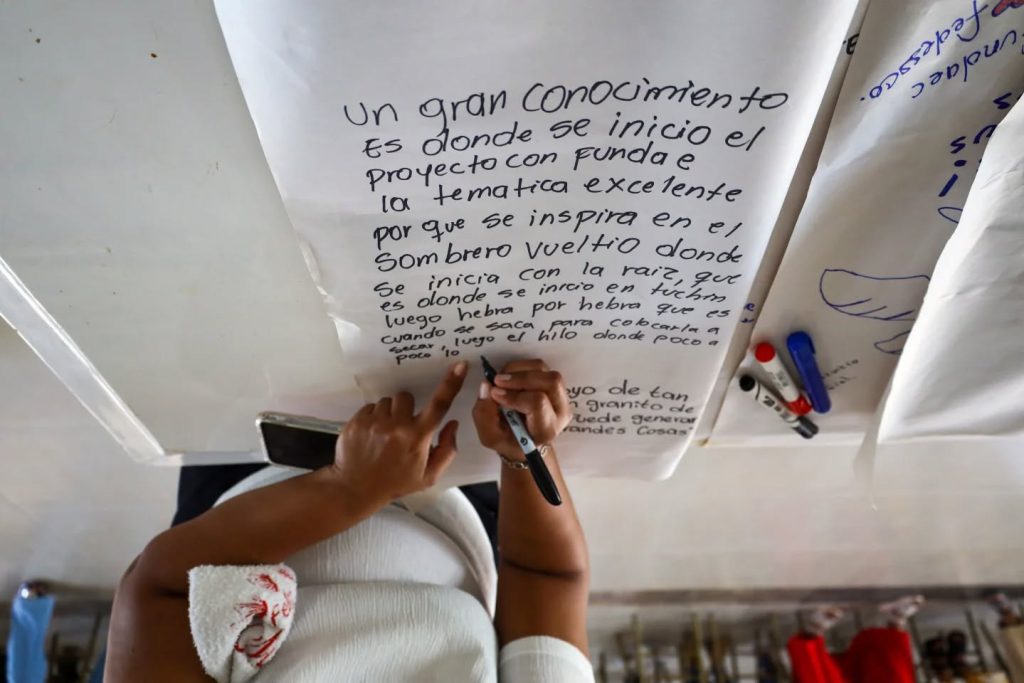 un gran conocimiento
Es donde se inicio el
proyecto con Funda e
la tematica excelente
por que se inspira en el
Sombrero vueltio donde
se inicia con la raiz, que
es donde se inicio en tuchin
luego hebra por hebra que es
cuando se saca para colocarla a
secar, luego el hilo donde poco a
poco lo
oyo de tan
n granito de
Puede generar
randes Cosas
fedessco.
undaec